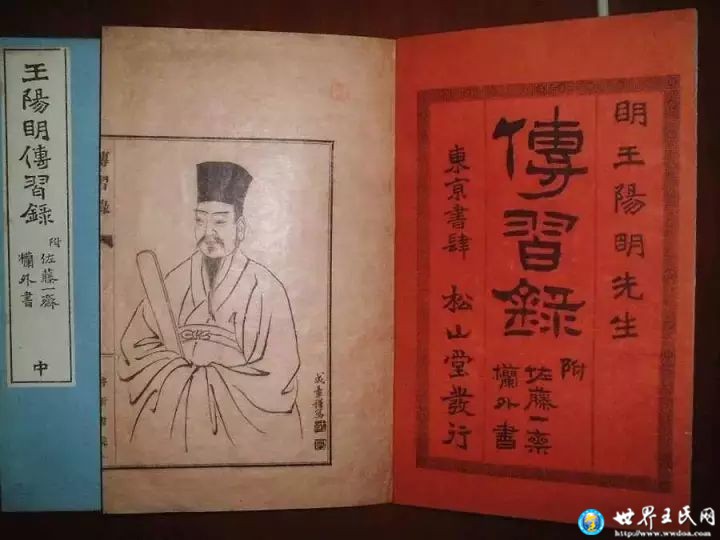 王陽眀傳習錄
附
佐藤一齋
欄外書
中
傳習錄
眀王陽眀先生
傳習錄
附
佐藤一齋
欄外書
東亰書肆 松山堂發行
世界王氏网
http://www.wwdoa.com